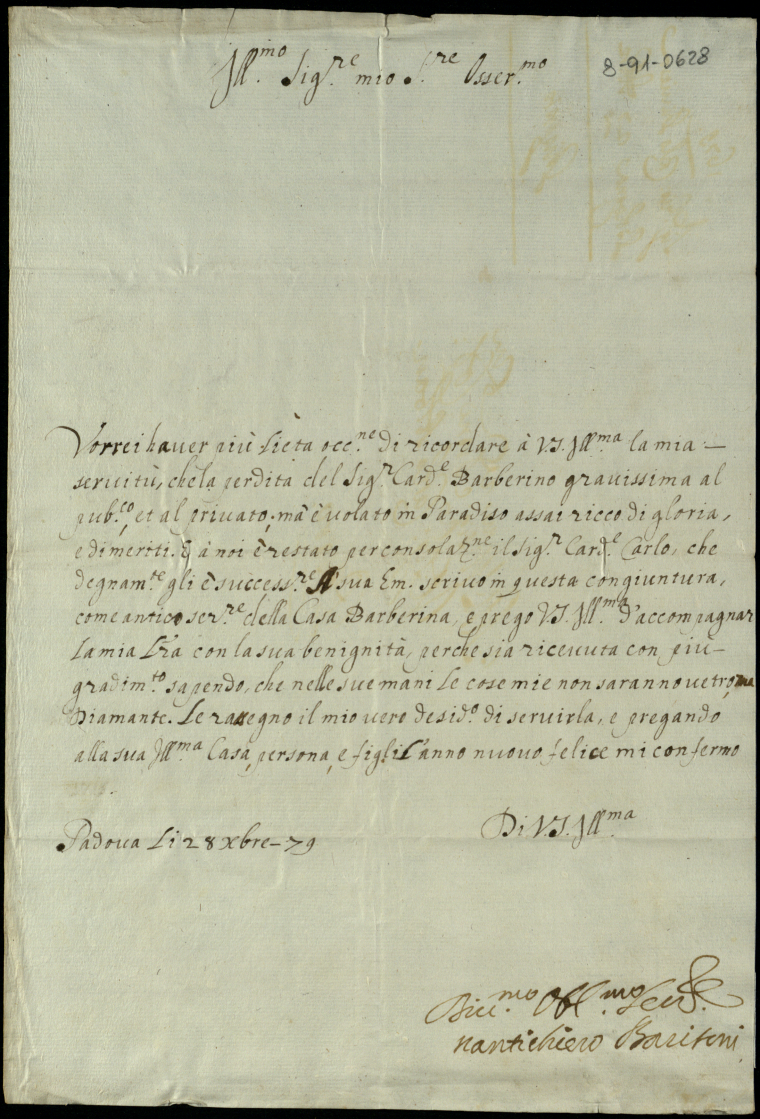 Jll.mo Sig.re mio S.re Osser.mo
8-91-0628
Vorrei haver più lieta occ.ne di ricordare à V.S. Jll.ma la mia
servitù, che la perdita del Sig.r Card.e Barberino gravissima al
pub.co, et al privato; mà è volato in Paradiso assai ricco di gloria,
e di meriti. E à noi è restato per consolaz.ne il Sig.r Card.e Carlo, che
degnam.te gli è success.re A sua Em. scrivo in questa congiuntura,
come antico ser.re della Casa Barberina, e prego V.S. Jll.ma d'accompagnar
la mia Lra con la sua benignità, perche sia ricevuta con più
gradim.to sapendo, che nelle sue mani le cose mie non saranno vetro, ma
Diamante. Le rassegno il mio vero desid.o di servirla, e pregando
alla sua Jll.ma Casa, persona, e figli l'anno nuovo felice mi confermo
Di V.S. Jll.ma
Padova li 28 Xbre-79